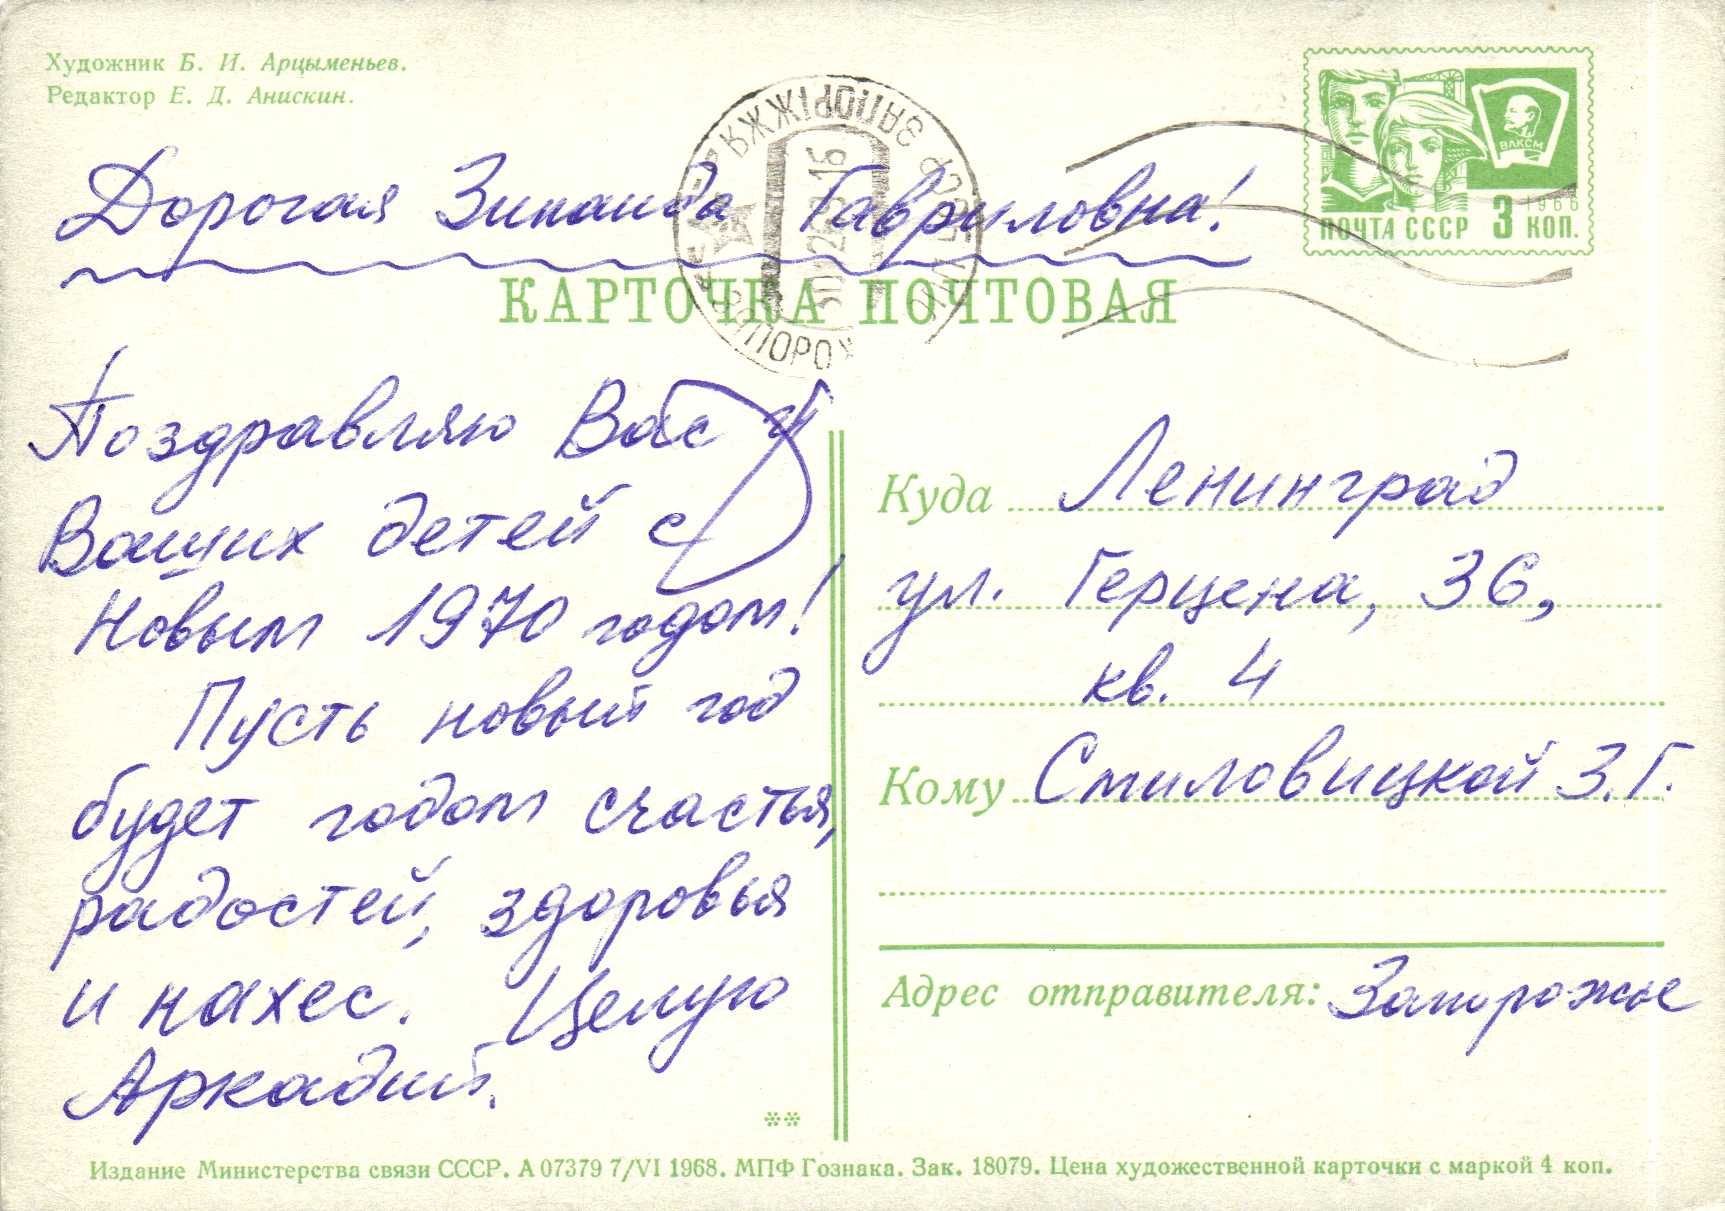 Художник Б. И. Арцыменьев.
Редактор Е. Д. Анискин.
ПОЧТА СССР 3 КОП.
1966
ВЛКСМ
Дорогая Зинаида Гавриловна!
КАРТОЧКА ПОЧТОВАЯ
Поздравляю Вас и
Ваших детей с
Новым 1970 годом!
Пусть новый год
будет годом счастья,
радостей, здоровья
и нахес. Целую
Аркадий.
Куда Ленинград
ул. Герцена, 36,
кв. 4
Кому Смиловицкой З.Г.
Адрес отправителя: Запорожье
Издание Министерства связи СССР. А 07379 7/VI 1968. МПФ Гознака. Зак. 18079. Цена художественной карточки с маркой 4 коп.